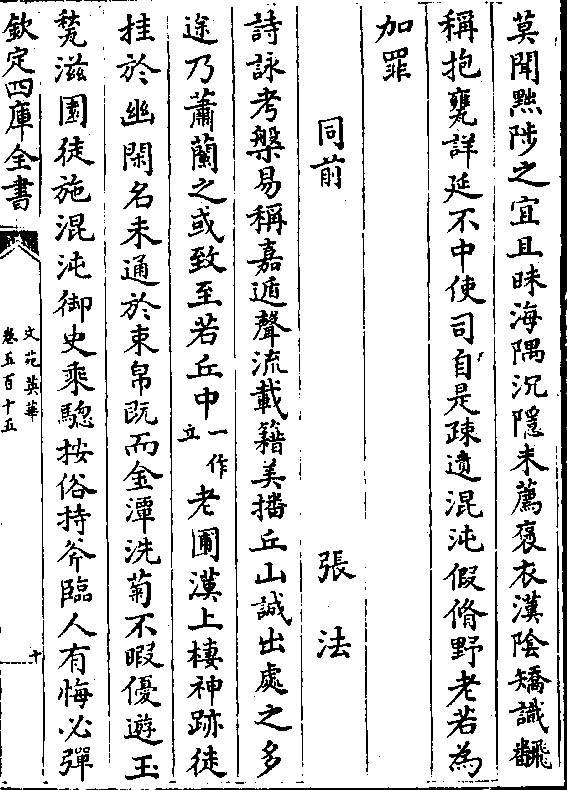 莫聞㸃陟之宜且昧海隅沉隱未薦褒衣漢陰矯識翻
稱抱甕詳延不中使司自是疎遺混沌假脩野老若為
加罪
同前 張法
詩詠考槃易稱嘉遁聲流載籍美播丘山誠出處之多
途乃蕭蘭之或致至若丘中一作立老圃漢上棲神跡徒
挂於幽閑名未通於束帛既而金潭洗菊不暇優遊玉
甃滋園徒施混沌御史乘驄按俗持斧臨人有悔必彈
欽定四庫全書
文苑英華
卷五百十五
十